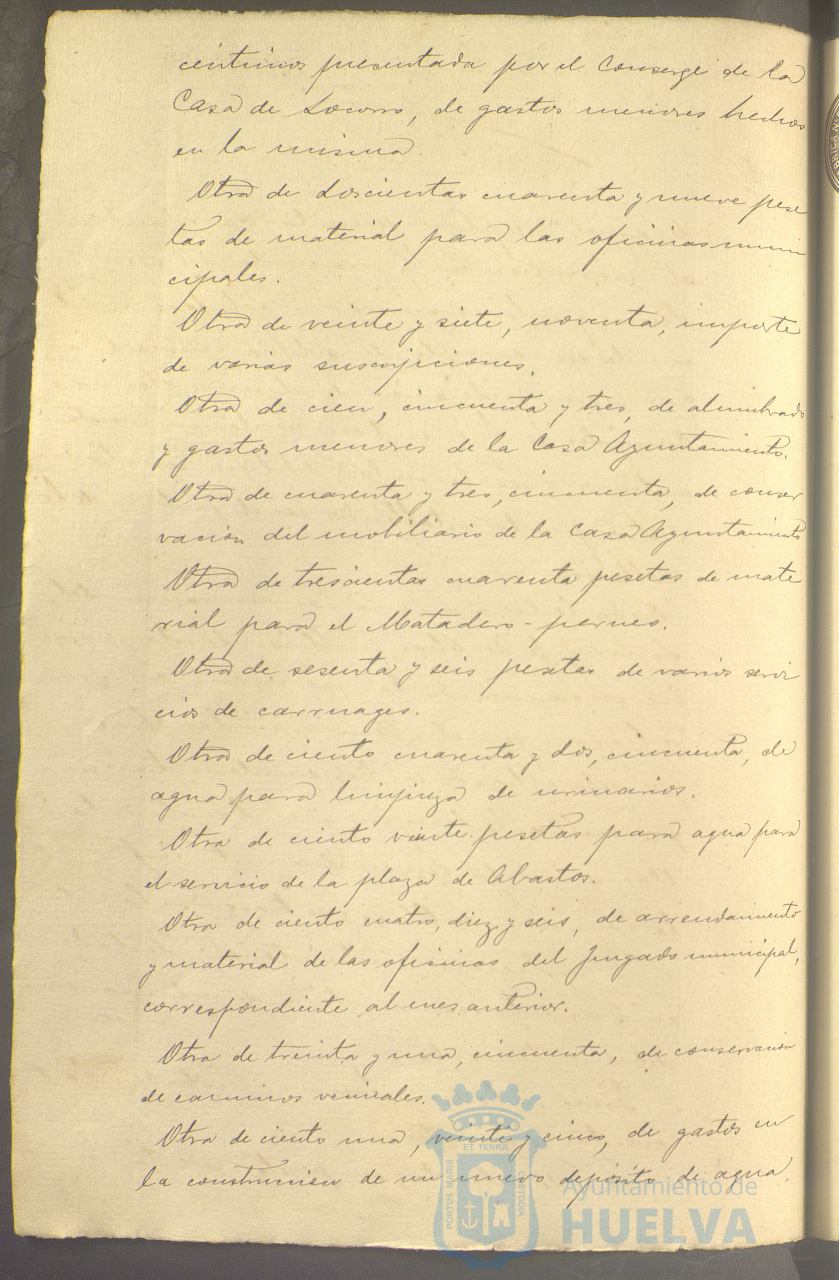 centimos presentada por el Conserge de la
Casa de Socorro, de gastos menores hechos
en la misma.
Otra de doscientas cuarenta y nueve pese
tas de material para las oficinas muni
cipales.
Otra de veinte y siete, noventa, importe
de varias suscripciones.
Otra de cien, cincuenta y tres, de alumbrado
y gastos menores de la Casa Ayuntamiento.
Otra de cuarenta y tres, cincuenta, de conser
vacion del mobiliario de la Casa Ayuntamiento
Otra de trescientas cuarenta pesetas de mate
rial para el Matadero-perneo.
Otra de sesenta y seis pesetas de varios servi
cios de carruages.
Otra de ciento cuarenta y dos, cincuenta, de
agua para limpieza de urinarios.
Otra de ciento veinte pesetas para agua para
el servicio de la plaza de Abastos.
Otra de ciento cuatro, diez y seis, de arrendamiento
y material de las oficinas del Juzgado municipal,
correspondiente al mes anterior.
Otra de treinta y una, cincuenta, de conservación
de caminos vecinales.
Otra de ciento una, veinte y cinco, de gastos en
la construccion de un nuevo depósito de agua.
PORTUS MARIS ET TERRE CUSTODIA
Ayuntamiento de
HUELVA